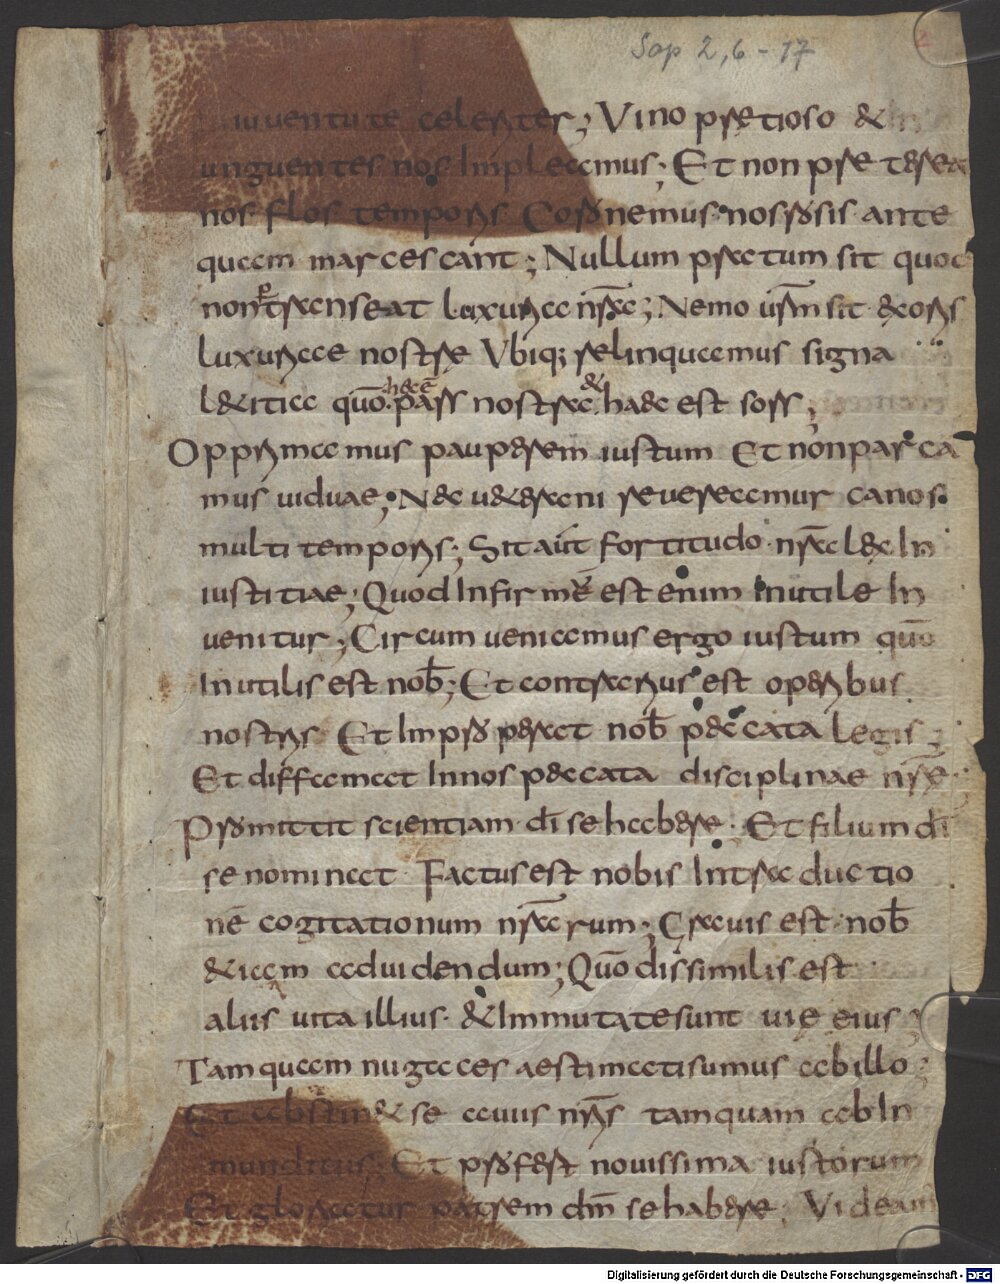 Sap 2,6-17
iuuentute celeriter; Vino pretioso &
unguentes nos Impleamus; Et non pretereat
nos flos temporis Coronemus nos rosis ante
quam marcescant; Nullum pratum sit quod
non ptranseat luxuria nr̄a; Nemo ur̄m sit exoris
luxuriae nostre Vbiq; relinquamus signa
l&itia quō hæc ē pars nostra & haec est sors;
Opprimamus pauperem iustum Et non parca
mus uiduae; Nec u&erani reueremur canos
multi temporis; Sit aūt fortitudo nr̄a lex In
iustitiae; Quod Infirmū est enim Inutile In
uenitur; Circumueniamus ergo iustum quō
Inutilis est nob̄; Et contrarius est operibus
nostris Et Improperat nob̄ peccata legis;
Et diffamat Innos peccata disciplinae nr̄e;
Promittit scientiam dī se habere. Et filium dī
se nominat Factus est nobis Intraductio
nē cogitationum nr̄arum; Grauis est nob̄
&iam aduidendum; Quō dissimilis est
aliis uita illius &Immutate sunt uię eius;
Tamquam nugaces aestimati sumus ab illo;
Et abstin& se auiis nr̄is tamquam ab In
munditiis; Et prefert nouissima iustorum
Et gloriatur patrem dm̄ se habere; Videam
Digitalisierung gefördert durch die Deutsche Forschungsgemeinschaft - DFG